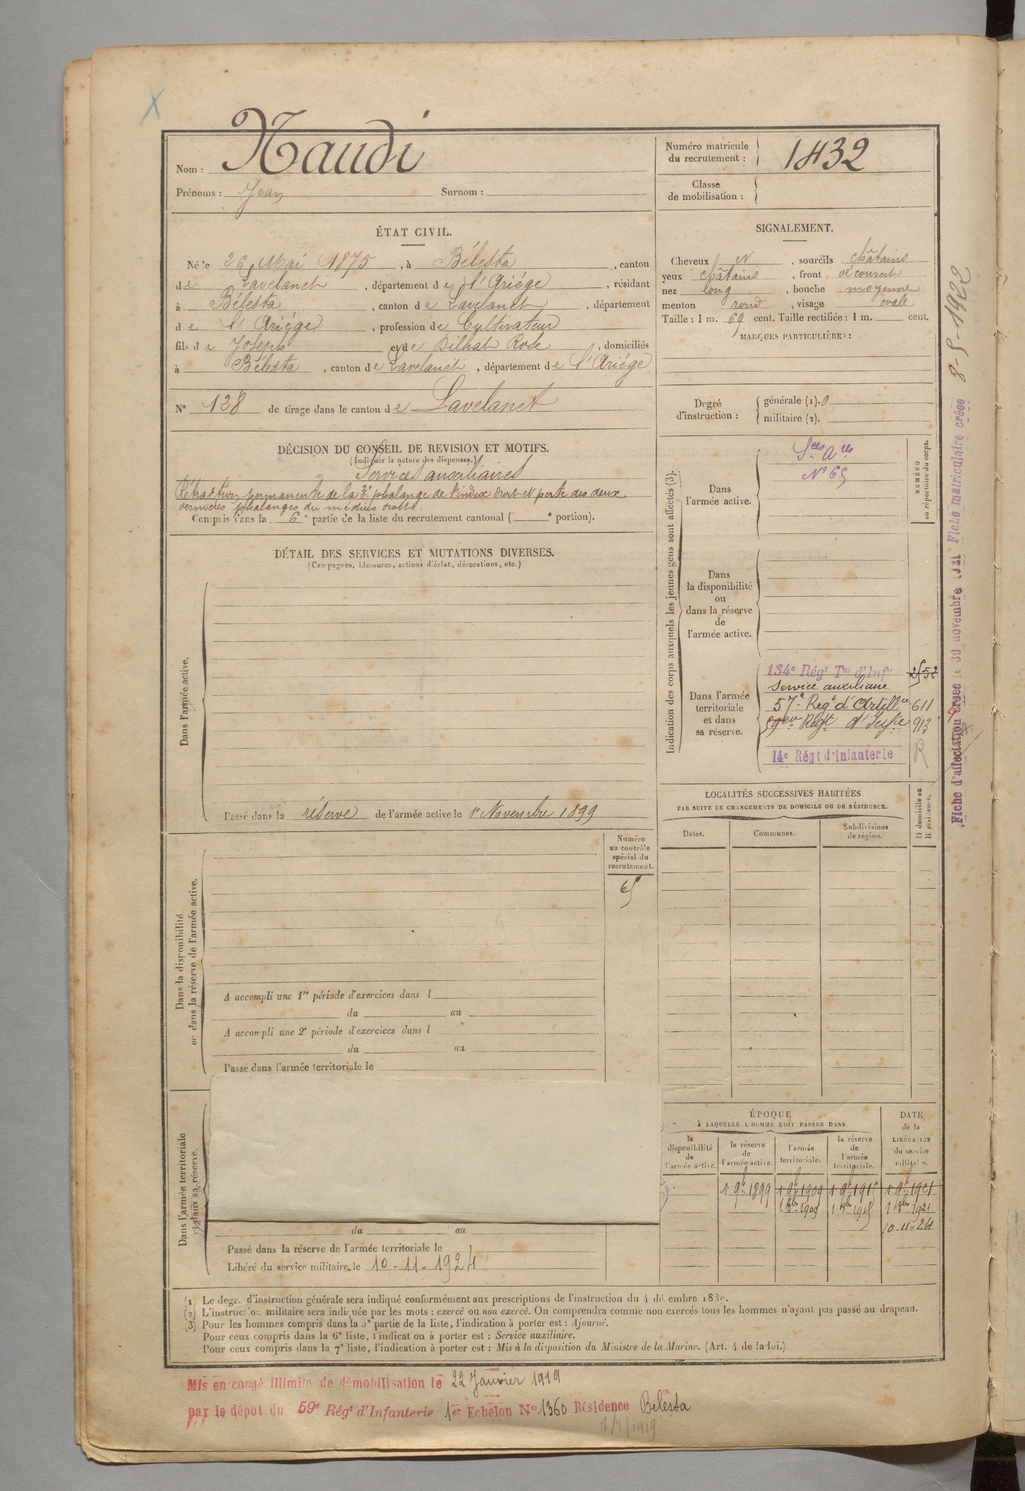 Nom : Naudi
Prénoms : Jean Surnom :
Numéro matricule du recrutement : 1432
Classe de mobilisation :
ÉTAT CIVIL.
Né le 26 Mai 1875, à Bélesta, canton
de Lavelanet, département de l'Ariége, résidant
à Bélesta, canton de Lavelanet, département
de l'Ariége, profession de Cultivateur
fils de Joseph et de Bilhat Rose, domiciliés
à Bélesta, canton de Lavelanet, département de l'Ariége
N° 128 de tirage dans le canton de Lavelanet
SIGNALEMENT.
Cheveux N, sourcils châtains
yeux châtains, front découvert
nez long, bouche moyenne
menton rond, visage ovale
Taille : 1 m. 69 cent. Taille rectifiée : 1 m. cent.
MARQUES PARTICULIÈRES :
Degré d'instruction : générale (1). 0
militaire (2).
DÉCISION DU CONSEIL DE REVISION ET MOTIFS.
(Indiquer la nature des dispenses.)
Services auxiliaires
Rétraction permanente de la 3e phalange de l'index droit et perte des deux
dernières phalanges du médius droit
Compris dans la 6e partie de la liste du recrutement cantonal ( e portion).
DÉTAIL DES SERVICES ET MUTATIONS DIVERSES.
(Campagnes, blessures, actions d'éclat, décorations, etc.)
Dans l'armée active.
Passé dans la réserve de l'armée active le 1er Novembre 1899
Indication des corps auxquels les jeunes gens sont affectés (3).
NUMÉRO au répertoire du corps.
Dans l'armée active.
Sces Ares
N° 65
Dans la disponibilité ou dans la réserve de l'armée active.
Dans l'armée territoriale et dans sa réserve.
134e Régt Tal d'Infie 2552
Service auxiliaire
57e Regt d'Artillie 611
Regt d'Infie 913
14e Régt d'Infanterie
LOCALITÉS SUCCESSIVES HABITÉES
PAR SUITE DE CHANGEMENTS DE DOMICILE OU DE RÉSIDENCE.
D. domicile ou R. résidence.
Dates. Communes. Subdivisions de région.
Numéro au contrôle spécial du recrutement.
65
Dans la disponibilité ou dans la réserve de l'armée active.
A accompli une 1re période d'exercices dans l
du au
A accompli une 2e période d'exercices dans l
du au
Passé dans l'armée territoriale le
Dans l'armée territoriale et dans sa réserve.
du au
Passé dans la réserve de l'armée territoriale le
Libéré du service militaire le 10-11-1924
ÉPOQUE
À LAQUELLE L'HOMME DOIT PASSER DANS
DATE de la LIBÉRATION du service militaire.
la disponibilité de l'armée active. la réserve de l'armée active. l'armée territoriale. la réserve de l'armée territoriale.
1 9b 1899 1 9b 1909 1 9b 1915 1 9b 1921
1 8bre 1909 1 8bre 1915 1 8bre 1921
10-11-24
(1) Le degré d'instruction générale sera indiqué conformément aux prescriptions de l'instruction du 4 décembre 1889.
(2) L'instruction militaire sera indiquée par les mots : exercé ou non exercé. On comprendra comme non exercés tous les hommes n'ayant pas passé au drapeau.
(3) Pour les hommes compris dans la 5e partie de la liste, l'indication à porter est : Ajourné.
Pour ceux compris dans la 6e liste, l'indication à porter est : Service auxiliaire.
Pour ceux compris dans la 7e liste, l'indication à porter est : Mis à la disposition du Ministre de la Marine. (Art. 4 de la loi.)
Mis en congé illimité de démobilisation le 22 Janvier 1919
par le dépot du 59e Régt d'Infanterie 1er Echelon N° 1360 Résidence Bélesta
Fiche d'affectation créée le 30 novembre 1921 Fiche matriculaire créée 8-5-1922